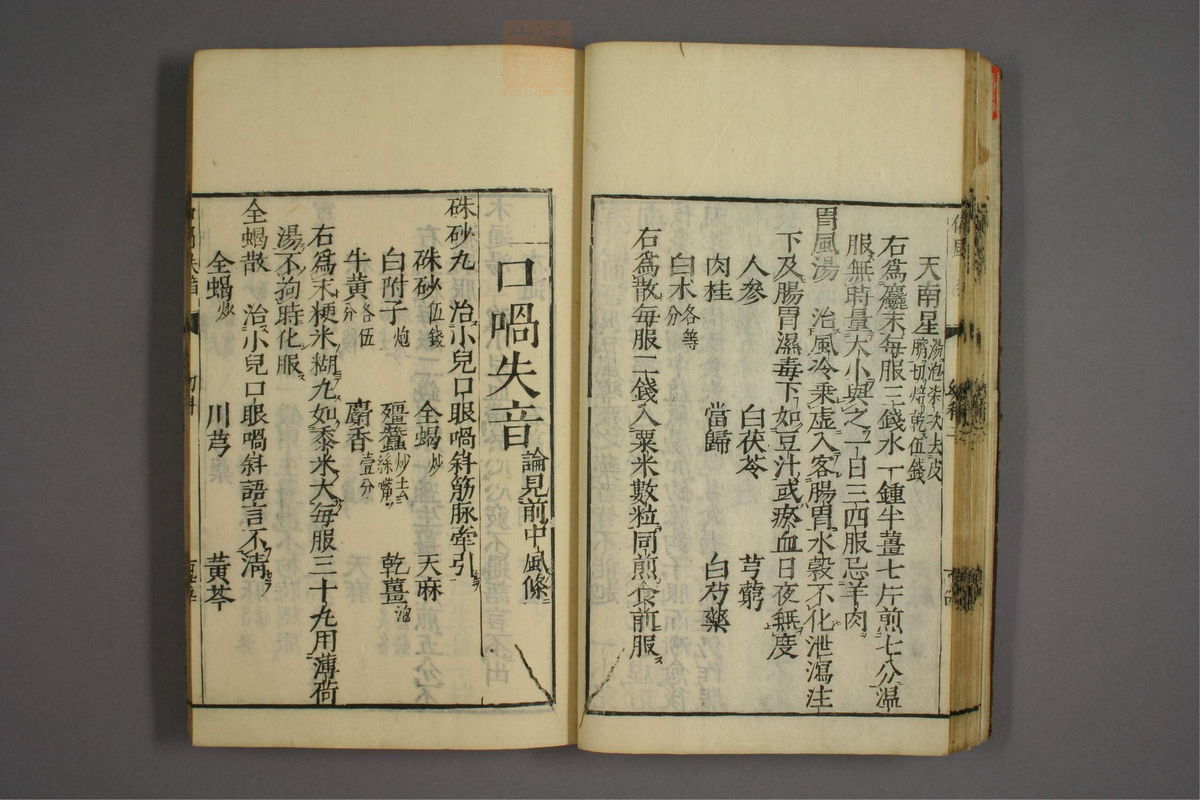 天南星湯泡柒次去皮臍切焙乾伍錢
右爲麤末每服三錢水一鍾半薑七片煎七分温
服無時量大小與之一日三四服忌羊肉
胃風湯 治風冷乗虚入客腸胃水穀不化泄瀉注
下及腸胃濕毒下如豆汁或瘀血日夜無度
人參 白茯苓 芎藭
肉桂 當歸 白芍藥
白朮各等分
右爲散每服二錢入粟米數粒同煎食前服
口喎失音論見前中風條
硃砂丸 治小兒口眼喎斜筋脉牽引
硃砂伍錢 全蝎炒 天麻
白附子炮 殭蠶炒去絲嘴 乾薑
牛黄各伍分 麝香壹分
右爲末粳米糊丸如黍米大每服三十丸用薄荷
湯不拘時化服
全蝎散 治小兒口眼喎斜語言不清
全蝎炒 川芎 黄芩